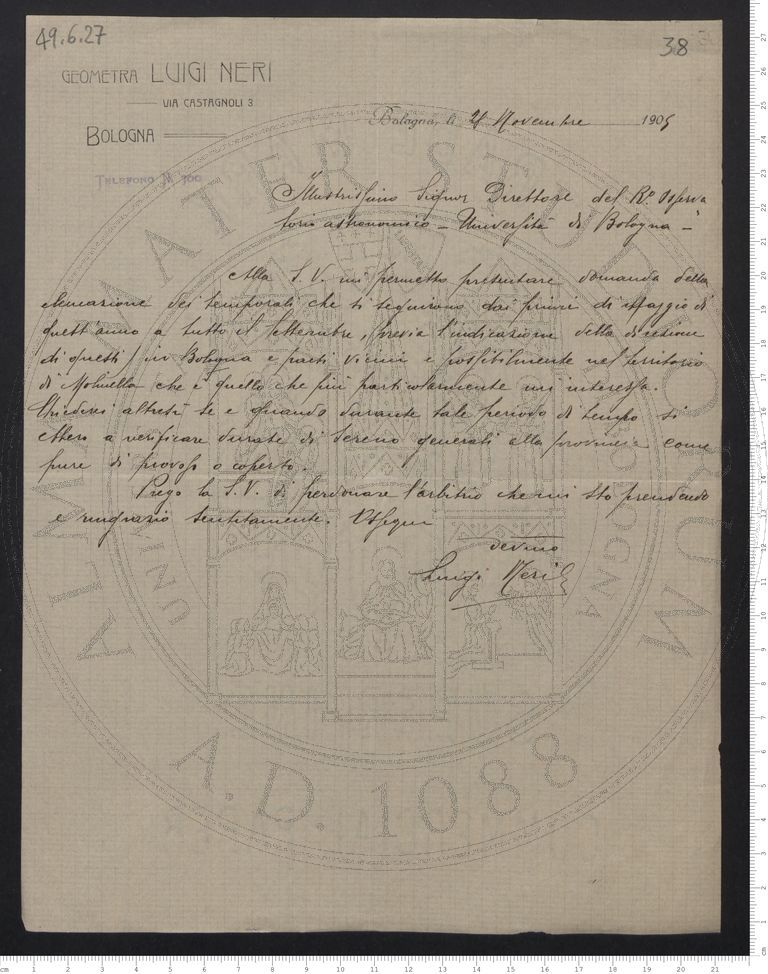 49.6.27
38
GEOMETRA LUIGI NERI
VIA CASTAGNOLI 3
BOLOGNA
TELEFONO N. 700
Bologna, li 21 Novembre 1905
Illustrissimo Signor Direttore del R.º Osserva
torio astronomico – Università di Bologna –
Alla S. V. mi permetto presentare domanda della
elencazione dei temporali che si seguirono dai primi di Maggio di
quest'anno a tutto il settembre, previa l'indicazione della direzione
di questi, in Bologna e paesi vicini e possibilmente nel territorio
di Molinella che è quello che più particolarmente mi interessa.
Chiederei altresì se e quando durante tale periodo di tempo si
ebbero a verificare durate di sereno generali alla provincia come
pure di piovoso o coperto.
Prego la S. V. di perdonare l'arbitrio che mi sto prendendo
e ringrazio sentitamente. Ossequi
devmo
Luigi Neri
ALMA MATER STUDIORUM
A.D. 1088